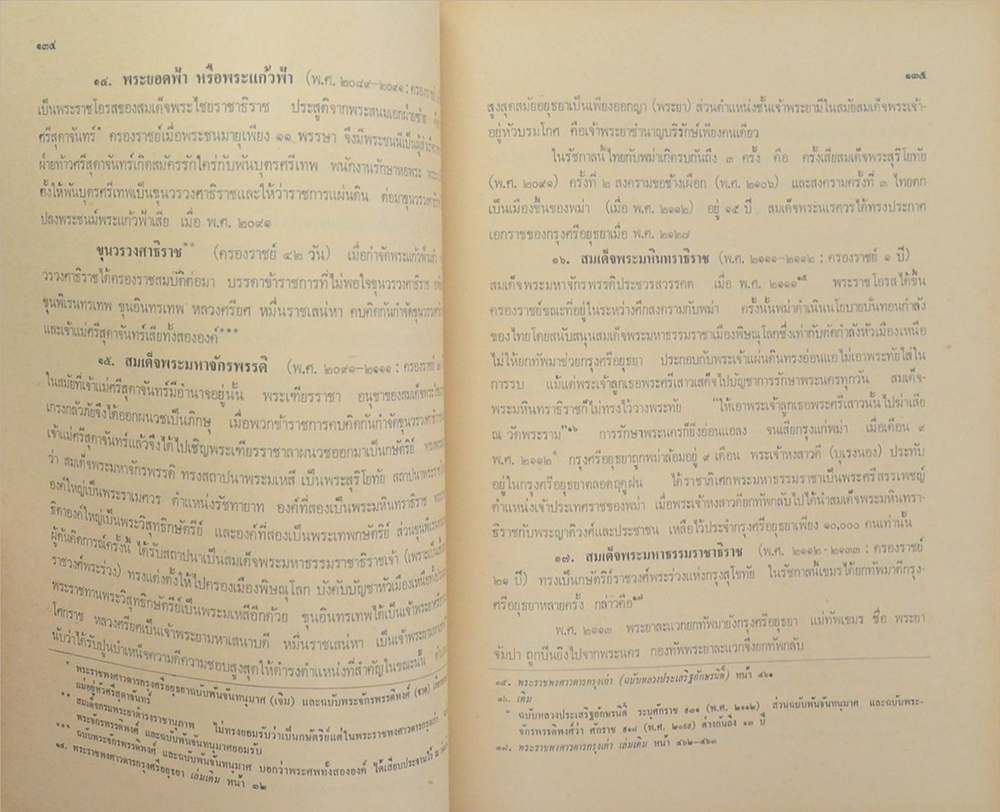 ๑๓๔
๑๔. พระยอดฟ้า หรือพระแก้วฟ้า (พ.ศ. ๒๐๘๙-๒๐๙๑ : ครองราชย์
เป็นพระราชโอรสของสมเด็จพระไชยราชาธิราช ประสูติจากพระสนมเอกฝ่ายซ้าย
ศรีสุดาจันทร์* ครองราชย์เมื่อพระชนมายุเพียง ๑๑ พรรษา จึงมีพระชนนีเป็นผู้สำเร็จ
ฝ่ายท้าวศรีสุดาจันทร์เกิดสมัครรักใคร่กับพันบุตรศรีเทพ พนักงานรักษาหอพระ
ตั้งให้พันบุตรศรีเทพเป็นขุนวรวงศาธิราชและให้ว่าราชการแผ่นดิน ต่อมาขุนวรวงศาธิ
ปลงพระชนม์พระแก้วฟ้าเสีย เมื่อ พ.ศ. ๒๐๙๑
ขุนวรวงศาธิราช** (ครองราชย์ ๔๒ วัน) เมื่อกำจัดพระแก้วฟ้าแล้ว
วรวงศาธิราชได้ครองราชสมบัติต่อมา บรรดาข้าราชการที่ไม่พอใจขุนวรวงศาธิราช
ขุนพิเรนทรเทพ ขุนอินทรเทพ หลวงศรียศ หมื่นราชเสน่หา คบคิดกันกำจัดขุนวรวงศา
และเจ้าแม่ศรีสุดาจันทร์เสียทั้งสององค์***
๑๕. สมเด็จพระมหาจักรพรรดิ (พ.ศ. ๒๐๙๑-๒๑๑๑ : ครองราชย์
ในสมัยที่เจ้าแม่ศรีสุดาจันทร์มีอำนาจอยู่นั้น พระเฑียรราชา อนุชาของสมเด็จพระไชย
เกรงกลัวภัยจึงได้ออกผนวชเป็นภิกษุ เมื่อพวกข้าราชการคบคิดกันกำจัดขุนวรวงศาธิราช
เจ้าแม่ศรีสุดาจันทร์แล้วจึงได้ไปเชิญพระเฑียรราชาลาผนวชออกมาเป็นกษัตริย์
ว่า สมเด็จพระมหาจักรพรรดิ ทรงสถาปนาพระมเหสี เป็นพระสุริโยทัย สถาปนาพระราช
องค์ใหญ่เป็นพระราเมศวร ตำแหน่งรัชทายาท องค์ที่สองเป็นพระมหินทราธิราช
ธิดาองค์ใหญ่เป็นพระวิสุทธิกษัตรีย์ และองค์ที่สองเป็นพระเทพกษัตรีย์ ส่วนขุนพิเรนทร
ผู้ต้นคิดการณ์ครั้งนี้ ได้รับสถาปนาเป็นสมเด็จพระมหาธรรมราชาธิราชเจ้า (เพราะเป็น
ราชวงศ์พระร่วง) ทรงแต่งตั้งให้ไปครองเมืองพิษณุโลก บังคับบัญชาหัวเมืองเหนือทั้ง
พระราชทานพระวิสุทธิกษัตรีย์เป็นพระมเหสีอีกด้วย ขุนอินทรเทพได้เป็นเจ้าพระยาศรี
โศกราช หลวงศรียศเป็นเจ้าพระยามหาเสนาบดี หมื่นราชเสน่หา เป็นเจ้าพระยา
นับว่าได้รับปูนบำเหน็จความดีความชอบสูงสุดให้ดำรงตำแหน่งที่สำคัญในขณะนั้น
* พระราชพงศาวดารกรุงศรีอยุธยาฉบับพันจันทนุมาศ (เจิม) และฉบับพระจักรพรรดิพงศ์ (จาด)
แม่อยู่หัวศรีสุดาจันทร์
** สมเด็จกรมพระยาดำรงราชานุภาพ ไม่ทรงยอมรับว่าเป็นกษัตริย์แต่ในพระราชพงศาวดารกรุงเก่า
พระจักรพรรดิพงศ์ และฉบับพันจันทนุมาศยอมรับ
*** ฉบับพระจักรพรรดิพงศ์ และฉบับพันจันทนุมาศ บอกว่าพระศพทั้งสององค์ ได้เสียบประจานไว้ ณ
๑๔. พระราชพงศาวดารกรุงศรีอยุธยา เล่มเดิม หน้า ๓๒
๑๓๕
สูงสุดสมัยอยุธยาเป็นเพียงออกญา (พระยา) ส่วนตำแหน่งชั้นเจ้าพระยามีในสมัยสมเด็จพระเจ้า-
อยู่หัวบรมโกศ คือเจ้าพระยาชำนาญบริรักษ์เพียงคนเดียว
ในรัชกาลนี้ไทยกับพม่าเกิดรบกันถึง ๓ ครั้ง คือ ครั้งเสียสมเด็จพระสุริโยทัย
(พ.ศ. ๒๐๙๑) ครั้งที่ ๒ สงครามขอช้างเผือก (พ.ศ. ๒๑๐๖) และสงครามครั้งที่ ๓ ไทยตก
เป็นเมืองขึ้นของพม่า (เมื่อ พ.ศ. ๒๑๑๒) อยู่ ๑๕ ปี สมเด็จพระนเรศวรได้ทรงประกาศ
เอกราชของกรุงศรีอยุธยาเมื่อ พ.ศ. ๒๑๒๗
๑๖. สมเด็จพระมหินทราธิราช (พ.ศ. ๒๑๑๑-๒๑๑๒ : ครองราชย์ ๑ ปี)
สมเด็จพระมหาจักรพรรดิประชวรสวรรคต เมื่อ พ.ศ. ๒๑๑๑๑๕ พระราชโอรสได้ขึ้น
ครองราชย์ขณะที่อยู่ในระหว่างศึกสงครามกับพม่า ครั้งนั้นพม่าดำเนินนโยบายบั่นทอนกำลัง
ของไทยโดยสนับสนุนสมเด็จพระมหาธรรมราชาเมืองพิษณุโลกซึ่งเท่ากับตัดกำลังหัวเมืองเหนือ
ไม่ให้ยกทัพมาช่วยกรุงศรีอยุธยา ประกอบกับพระเจ้าแผ่นดินทรงอ่อนแอไม่เอาพระทัยใส่ใน
การรบ แม้แต่พระเจ้าลูกเธอพระศรีเสาวเสด็จไปบัญชาการรักษาพระนครทุกวัน สมเด็จ-
พระมหินทราธิราชก็ไม่ทรงไว้วางพระทัย "ให้เอาพระเจ้าลูกเธอพระศรีเสาวนั้นไปฆ่าเสีย
ณ วัดพระราม"๑๖ การรักษาพระนครก็ยิ่งอ่อนแอลง จนเสียกรุงแก่พม่า เมื่อเดือน ๙
พ.ศ. ๒๑๑๒* กรุงศรีอยุธยาถูกพม่าล้อมอยู่ ๙ เดือน พระเจ้าหงสาวดี (บุเรงนอง) ประทับ
อยู่ในกรุงศรีอยุธยาตลอดฤดูฝน ได้ราชาภิเศกพระมหาธรรมราชาเป็นพระศรีสรรเพชญ์
ตำแหน่งเจ้าประเทศราชของพม่า เมื่อพระเจ้าหงสาวดียกทัพกลับไปได้นำสมเด็จพระมหินทรา-
ธิราชกับพระญาติวงศ์และประชาชน เหลือไว้ประจำกรุงศรีอยุธยาเพียง ๑๐,๐๐๐ คนเท่านั้น
๑๗. สมเด็จพระมหาธรรมราชาธิราช (พ.ศ. ๒๑๑๒-๒๑๓๓ : ครองราชย์
๒๑ ปี) ทรงเป็นกษัตริย์ราชวงศ์พระร่วงแห่งกรุงสุโขทัย ในรัชกาลนี้เขมรได้ยกทัพมาตีกรุง-
ศรีอยุธยาหลายครั้ง กล่าวคือ๑๗
พ.ศ. ๒๑๑๓ พระยาละแวกยกทัพมายังกรุงศรีอยุธยา แม่ทัพเขมร ชื่อ พระยา
จัมปา ถูกปืนยิงไปจากพระนคร กองทัพพระยาละแวกจึงยกทัพกลับ
๑๕. พระราชพงศาวดารกรุงเก่า (ฉบับหลวงประเสริฐอักษรนิติ์) หน้า ๔๖๑
๑๖. เดิม
* ฉบับหลวงประเสริฐอักษรนิติ์ ระบุศักราช ๙๓๑ (พ.ศ. ๒๑๑๒) ส่วนฉบับพันจันทนุมาศ และฉบับพระ-
จักรพรรดิพงศ์ว่า ศักราช ๙๑๘ (พ.ศ. ๒๐๙๙) ต่างกันถึง ๑๓ ปี
๑๗. พระราชพงศาวดารกรุงเก่า เล่มเดิม หน้า ๔๖๒-๔๖๓